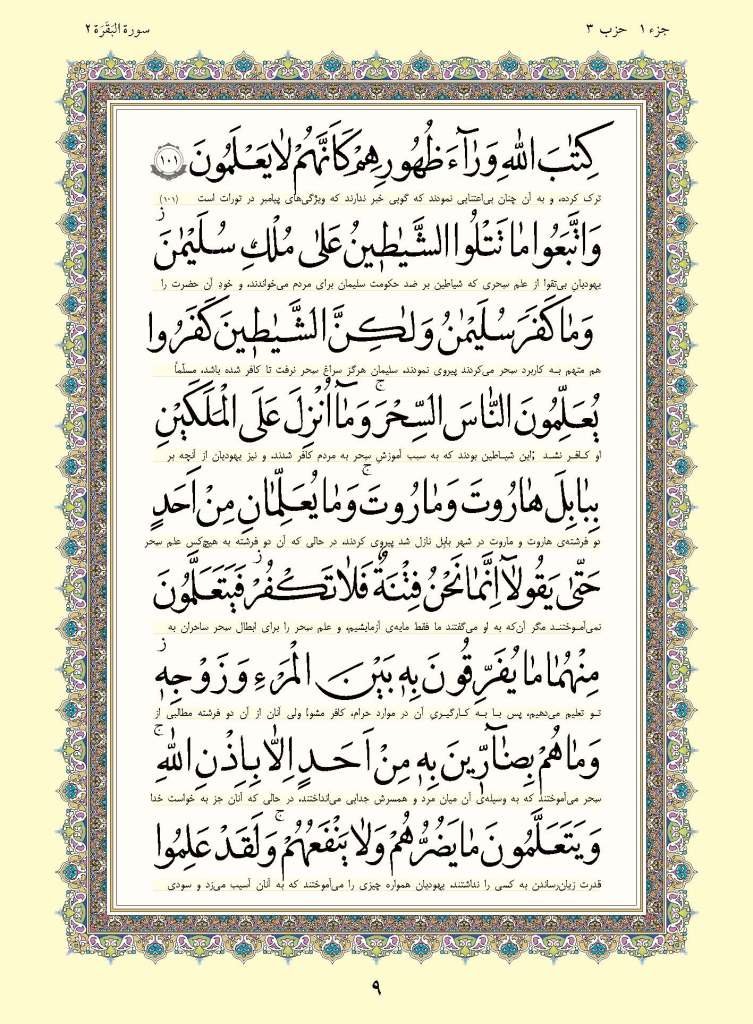 جزء ۱ حزب ۳
سورة البَقَرَة ۲
كِتٰبَ اللّٰهِ وَرَآءَ ظُهُورِهِمْ كَاَنَّهُمْ لَا يَعْلَمُونَ ﴿۱۰۱﴾
ترک کرده، و به آن چنان بی‌اعتنایی نمودند که گویی خبر ندارند که ویژگی‌های پیامبر در تورات است (۱۰۱)
وَاتَّبَعُوا مٰا تَتْلُوا الشَّيٰاطٖينُ عَلىٰ مُلْكِ سُلَيْمٰنَ ز
یهودیانِ بی‌تقوا از علم سِحری که شیاطین بر ضد حکومت سلیمان برای مردم می‌خواندند، و خودِ آن حضرت را
وَمٰا كَفَرَ سُلَيْمٰنُ وَلٰكِنَّ الشَّيٰاطٖينَ كَفَرُوا
هم متهم به کاربرد سِحر می‌کردند پیروی نمودند، سلیمان هرگز سراغ سِحر نرفت تا کافر شده باشد، مسلّماً
يُعَلِّمُونَ النّٰاسَ السِّحْرَ ج وَمٰآ اُنْزِلَ عَلَى الْمَلَكَيْنِ
او کافر نشد ؛این شیاطین بودند که به سبب آموزشِ سِحر به مردم کافر شدند، و نیز یهودیان از آنچه بر
بِبٰابِلَ هٰارُوتَ وَمٰارُوتَ ج وَمٰا يُعَلِّمٰانِ مِنْ اَحَدٍ
دو فرشته‌ی هاروت و ماروت در شهر بابِل نازل شد پیروی کردند، در حالی که آن دو فرشته به هیچ‌کس علم سِحر
حَتّىٰ يَقُولَآ اِنَّمٰا نَحْنُ فِتْنَةٌ فَلٰا تَكْفُرْ ز فَيَتَعَلَّمُونَ
نمی‌آموختند مگر آن‌که به او می‌گفتند ما فقط مایه‌ی آزمایشیم، و علم سِحر را برای ابطال سِحر ساحران به
مِنْهُمٰا مٰا يُفَرِّقُونَ بِهٖ بَيْنَ الْمَرْءِ وَزَوْجِهٖ ز
تو تعلیم می‌دهیم، پس با به کارگیریِ آن در موارد حرام، کافر مشو! ولی آنان از آن دو فرشته مطالبی از
وَمٰا هُمْ بِضٰآرّٖينَ بِهٖ مِنْ اَحَدٍ اِلّٰا بِاِذْنِ اللّٰهِ ج
سِحر می‌آموختند که به وسیله‌ی آن میان مرد و همسرش جدایی می‌انداختند، در حالی که آنان جز به خواست خدا
وَيَتَعَلَّمُونَ مٰا يَضُرُّهُمْ وَلٰا يَنْفَعُهُمْ ج وَلَقَدْ عَلِمُوا
قدرت زیان‌رساندن به کسی را نداشتند، یهودیان همواره چیزی را می‌آموختند که به آنان آسیب می‌زد و سودی
۹